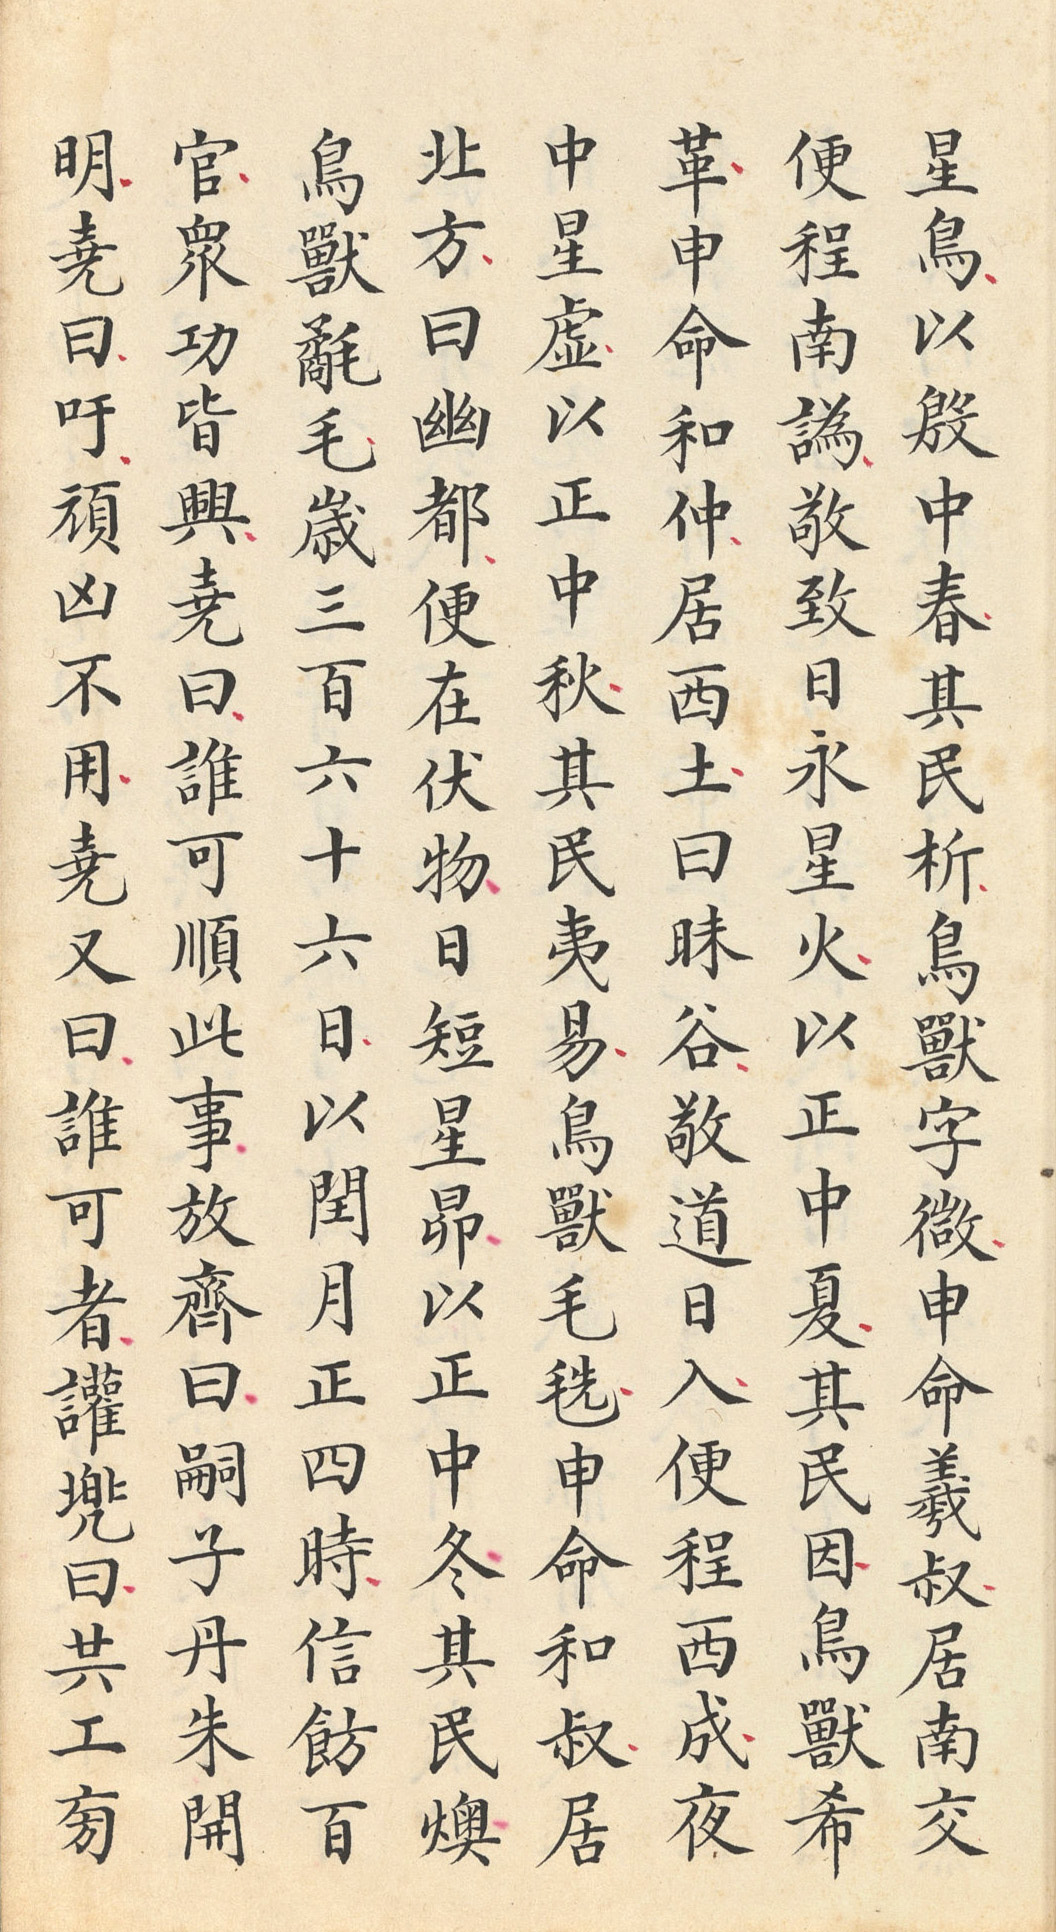 星鳥以殷中春其民析鳥獸字微申命羲叔居南交
便程南譌敬致日永星火以正中夏其民因鳥獸希
革申命和仲居西土曰昧谷敬道日入便程西成夜
中星虛以正中秋其民夷易鳥獸毛毨申命和叔居
北方曰幽都便在伏物日短星昴以正中冬其民燠
鳥獸氄毛歲三百六十六日以閏月正四時信飭百
官眾功皆興堯曰誰可順此事放齊曰嗣子丹朱開
明堯曰吁頑凶不用堯又曰誰可者讙兜曰共工旁